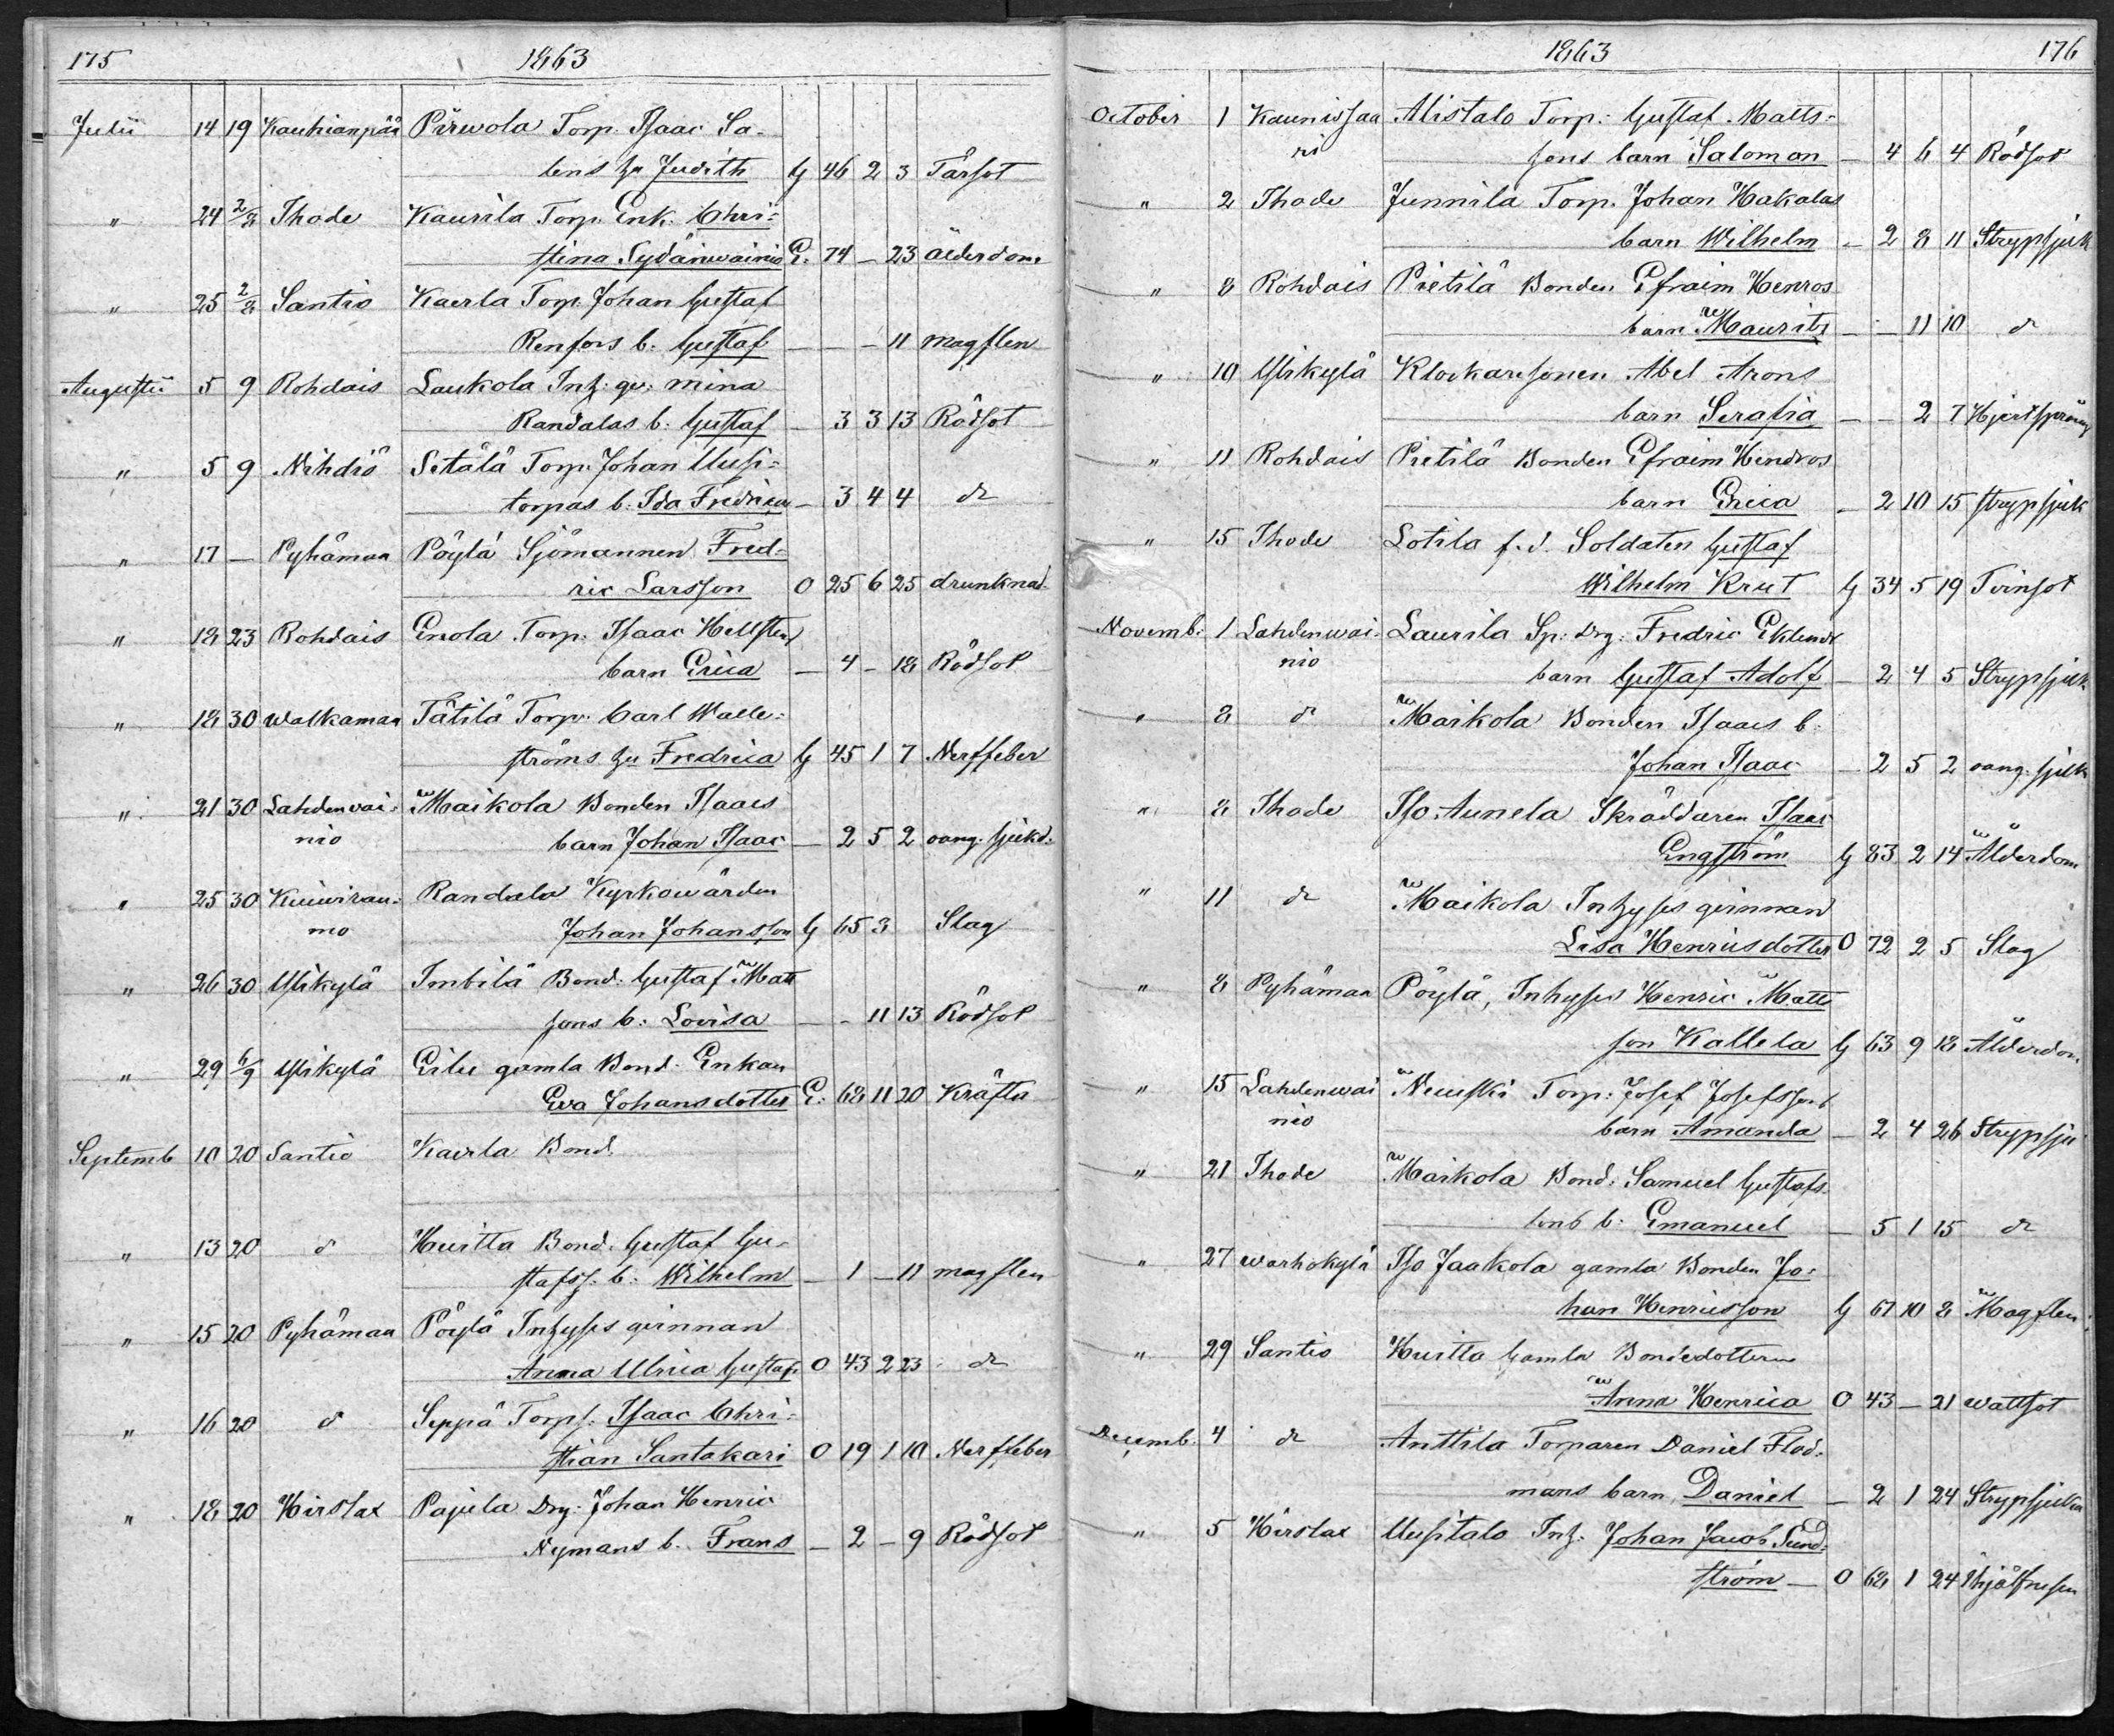 175 1863
Julii 14 19 Kauhianpää Pärwola Torp. Isaac Sa-
lens hu Judith G 46 2 3 Tärsot
" 24 2/8 Ihode Kaurila Torp. Enk. Chri-
stina Sydänwainio E. 74 - 23 Ålderdom
" 25 2/8 Santio Kaerla Torp. Johan Gustaf
Renfors b. Gustaf - - - 11 magflen
Augusti 5 9 Rohdais Laukola Inh: qv: mina
Randalas b. Gustaf - 3 3 13 Rödsot
" 5 9 Nihdiö Sètälä Torp. Johan Uusi-
torpas b. Ida Fredrica - 3 4 4 dr
" 17 - Pyhämaa Pöylä Sjömannen Fred-
ric Larsson O 25 6 25 drunknad
" 18 23 Rohdais Enola Torp. Isaac Hellstens
barn Erica - 4 - 18 Rödsot
" 18 30 Walkamaa Tätilä Torp. Carl Walle-
ströms hu Fredrica G 45 1 7 Nerffeber
" 21 30 Lahdenwai- Maikola Bonden Isaacs
nio barn Johan Isaac - 2 5 2 oang. sjukd.
" 25 30 Kuiwirau- Randala Kyrkowärden
mo Johan Johansson G 65 3 Slag
" 26 30 Ylikylä Imbilä Bond. Gustaf Matt
sons b. Lovisa - - 11 13 Rödsot
" 29 6/9 Ylikylä Eilu gamla Bond. Enkan
Eva Johansdotter E. 68 11 20 Kräfta
Septemb 10 20 Santio Kaerla Bond.
" 13 20 d Huitta Bond. Gustaf Gu-
stafss. b. Wilhelm - 1 - 11 magflen
" 15 20 Pyhämaa Pöylä Inhyses qvinnan
Anna Ulrica Gustafs. O 43 2 23 dr
" 16 20 d Seppä Torps. Isaac Chri-
stian Santakari O 19 1 10 Nerffeber
" 18 20 Hirslax Pajula Drg. Johan Henric
Nymans b. Frans - 2 - 9 Rödsot
1863 176
October 1 Kaunissaa Alistalo Torp. Gustaf Matts-
ri sons barn Saloman - 4 6 4 Rödsot
" 2 Ihode Junnila Torp. Johan Hakalas
barn Wilhelm - 2 8 11 Strypsjuk
" 8 Rohdais Pietilä Bonden Efraim Henros
barn Maurits - - 11 10 dr
" 10 Ylikylä Klockaresonen Abel Arons
barn Serafia - - 2 7 Hjertspräng
" 11 Rohdais Pietilä Bonden Efraim Hendros
barn Erica - 2 10 15 strypsjuk
" 15 Ihode Lotila f.d. Soldaten Gustaf
Wilhelm Krut G 34 5 19 Tvinsot
Novemb. 1 Lahdenwai- Laurila Sp: drg: Fredric Eklunds
nio barn Gustaf Adolf - 2 4 5 Strypsjuk
" 8 dr Maikola Bonden Isaacs b.
Johan Isaac - 2 5 2 oang. sjuk
" 8 Ihode Iso Aunela Skräddaren Isaac
Engström G 83 2 14 Ålderdom
" 11 dr Maikola Inhyses qvinnan
Lisa Henricsdotter O 72 2 5 Slag
" 8 Pyhämaa Pöylä, Inhyses Henric Matts
son Kallela G 63 9 18 Ålderdom
" 15 Lahdenwai Neuski Torp: Josef Josefssons
nio barn Amanda - 2 4 26 Strypsju
" 21 Ihode Maikola Bond. Samuel Gustafs-
sons b. Emanuel - 5 1 15 dr
" 27 Warhokylä Iso Jaakola gamla Bonden Jo-
han Henricsson G 67 10 8 Magflen
" 29 Santio Huitta Gamla Bondedottern
Anna Henrica O 43 - 21 wattsot
Decemb. 4 dr Anttila Torparen Daniel Flod-
mans barn Daniel - 2 1 24 Strypsjukn
" 5 Hirslax Uusitalo Inh. Johan Jacob Sund-
ström - O 68 1 24